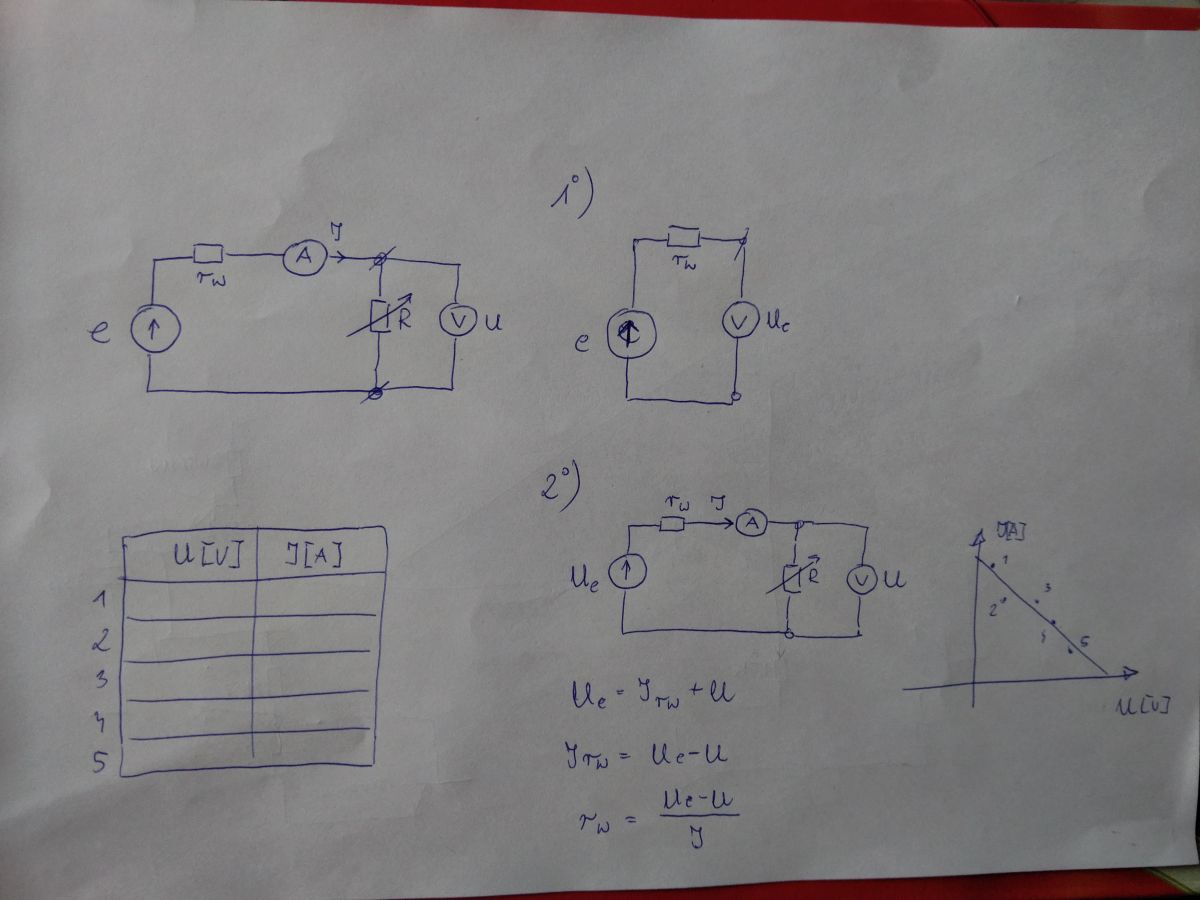 1°)
J
A
r_w
e
R
V
U
r_w
e
V
U_e
2°)
r_w J A
U_e
R
V
U
J[A]
1
2
3
4
5
U[V]
U[V] J[A]
1
2
3
4
5
U_e = J r_w + U
J r_w = U_e - U
r_w = \frac{U_e - U}{J}